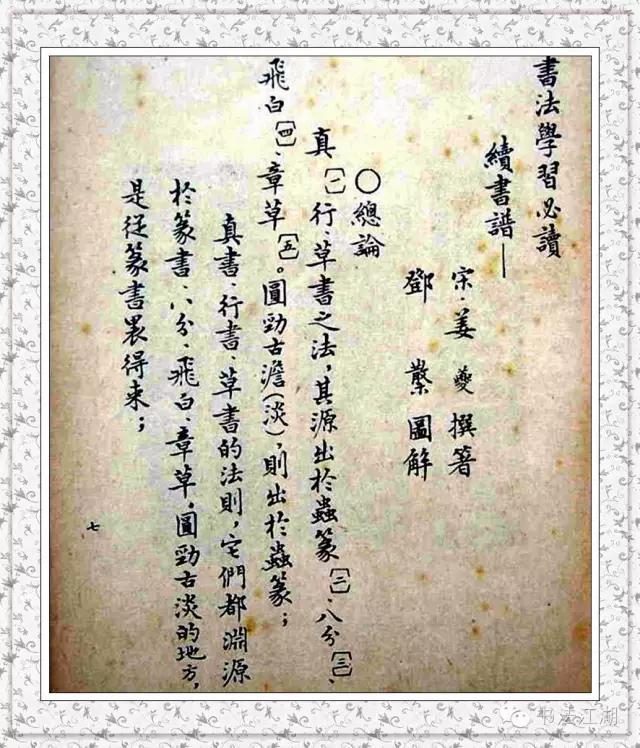 書法學習必讀
續書譜——
宋·姜夔撰著
鄧散圖解
〇總論
真〔一〕、行、草書之法，其源出於蟲篆〔二〕、八分〔三〕、
飛白〔四〕、章草〔五〕。圓勁古澹(淡)，則出於蟲篆；
真書、行書、草書的法則，它們都淵源
於篆書、八分、飛白、章草，圓勁古淡的地方，
是從篆書裏得来；
七
书法江湖